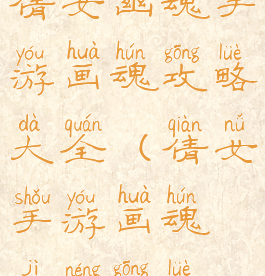 倩女幽魂手
yóu huà hún gōng lüè
游画魂攻略
dà quán qiàn nǚ
大全（倩女
shǒu yóu huà hún
手游画魂
jì néng gōng lüè